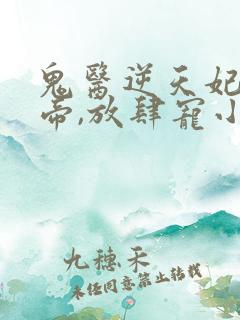 鬼醫逆天妃
帝,放肆寵小
九穗禾
未任同意禁止转载